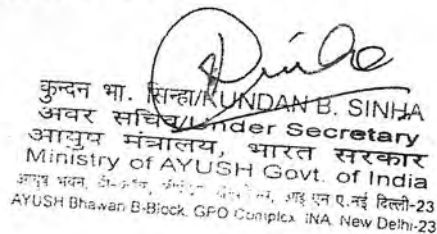 कुन्दन भा. सिन्हा/KUNDAN B. SINHA
अवर सचिव/Under Secretary
आयुष मंत्रालय, भारत सरकार
Ministry of AYUSH Govt. of India
आयुष भवन, आई एन ए, नई दिल्ली-23
AYUSH Bhawan B-Block, GPO Complex INA, New Delhi-23